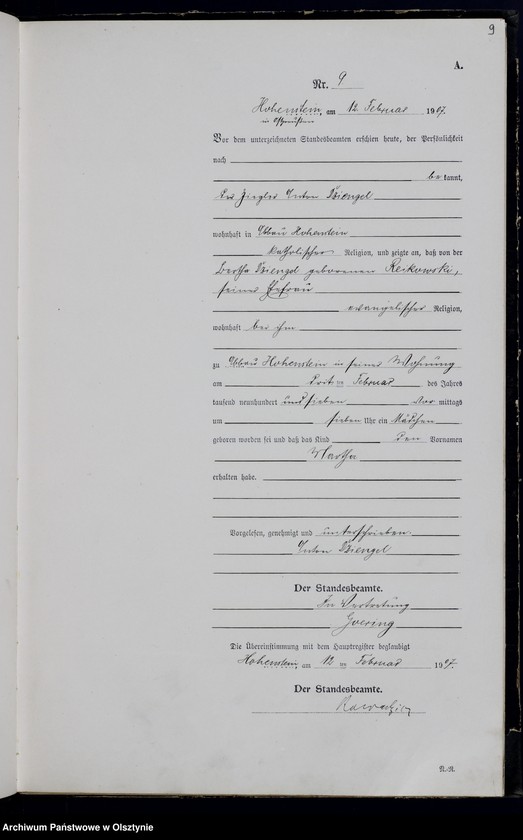 9
A.
Nr. 9
Hohenstein, am 12 Februar 1907.
in Ostpreußen
Vor dem unterzeichneten Standesbeamten erschien heute, der Persönlichkeit
nach
be kannt,
der Ziegler Anton
wohnhaft in Abbau Hohenstein
katholischer Religion, und zeigte an, daß von der
Bertha geborenen Reikowski,
seiner Ehefrau
evangelischer Religion,
wohnhaft bei ihm
zu Abbau Hohenstein in seiner Wohnung
am ten Februar des Jahres
tausend neunhundert und sieben Vor mittags
um sieben Uhr ein Mädchen
geboren worden sei und daß das Kind den Vornamen
Martha
erhalten habe.
Vorgelesen, genehmigt und unterschrieben
Anton
Der Standesbeamte.
In Vertretung
Goering
Die Übereinstimmung mit dem Hauptregister beglaubigt
Hohenstein, am 12 ten Februar 1907.
Der Standesbeamte.
Archiwum Państwowe w Olsztynie